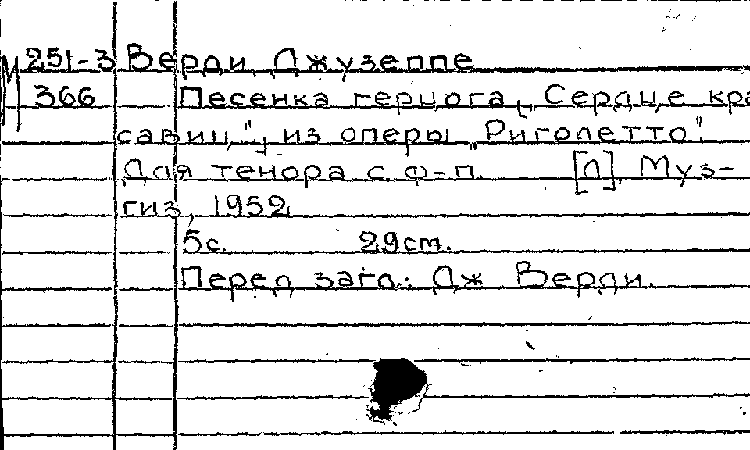 М 251-3 Верди, Джузеппе
366 Песенка герцога „Сердце кра-
савиц", из оперы „Риголетто".
Для тенора с ф-п. [Л], Муз-
гиз, 1952
5с. 29см.
Перед загл.: Дж Верди.